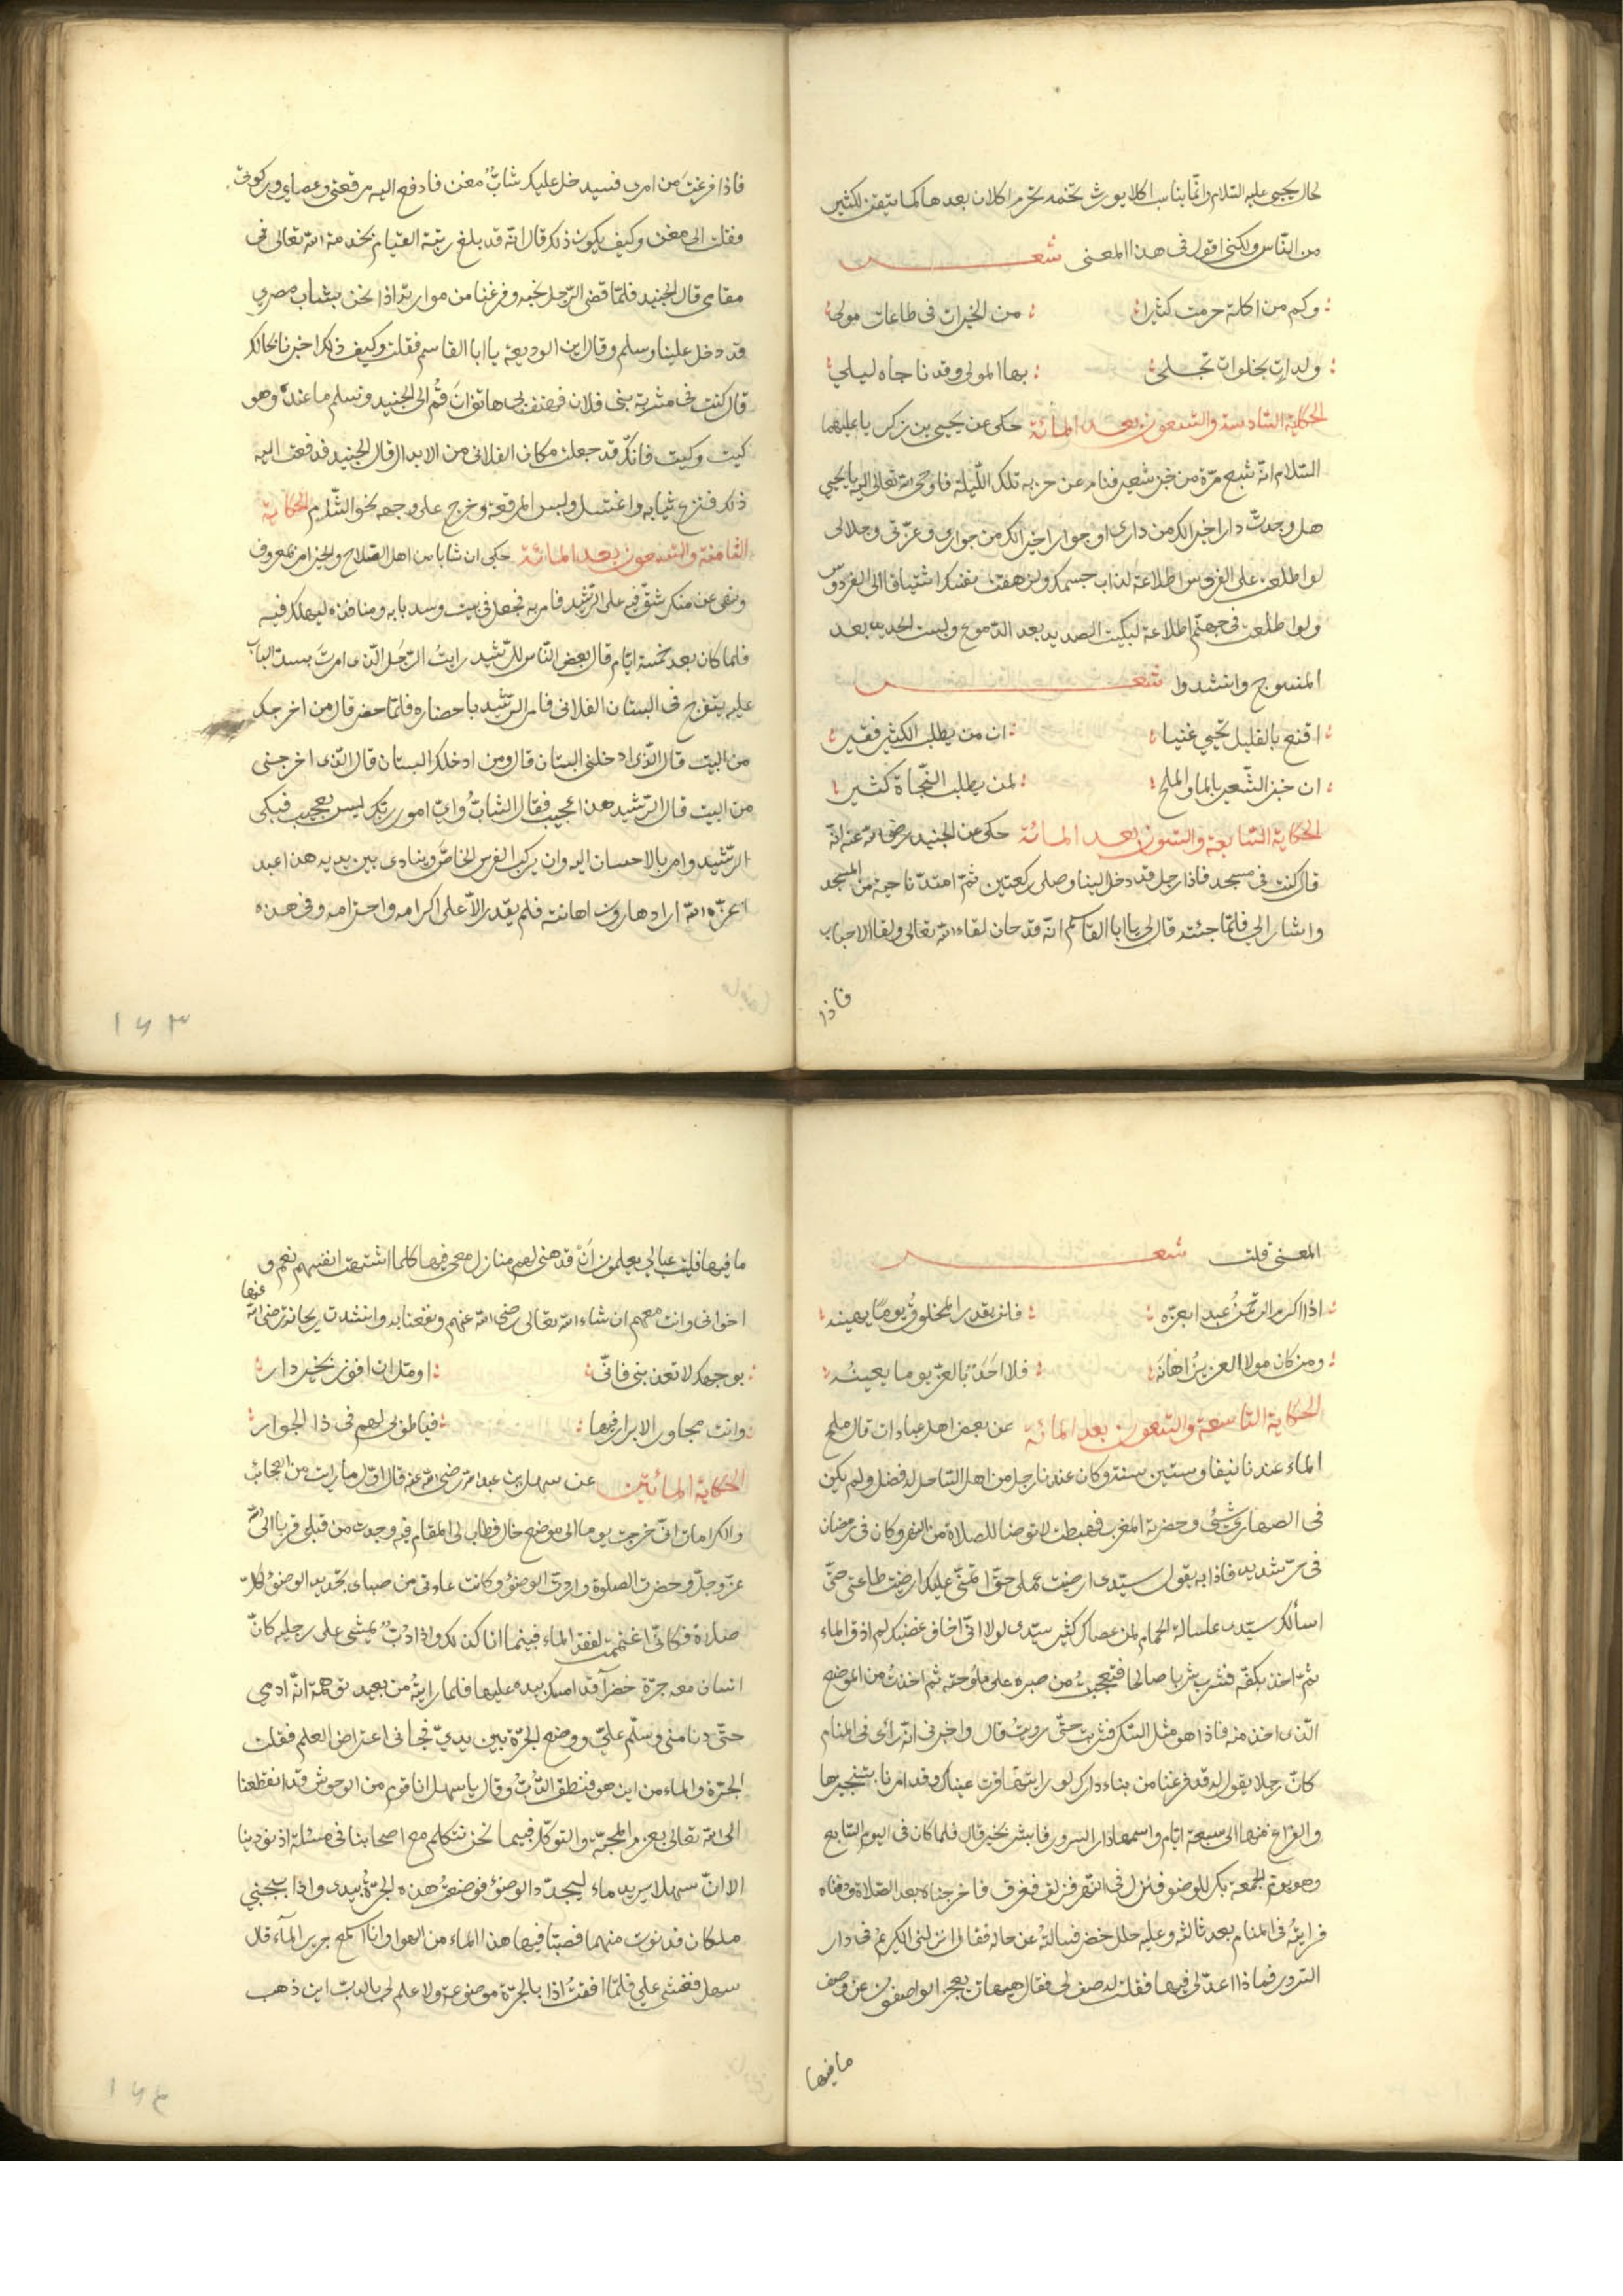 لحال يحيى عليه السلام وانما يناسب اكلا يورث تخمه تحرم اكلات بعدها كما يتفق لكثير
من الناس ولكنى اقول فى هذا المعنى شعر
وكم من اكلة حرمت كثيرا من الخيرات فى طاعات مولى
ولذات بخلوات تجلى بها المولى وقد ناجاه ليلى
الحكاية السادسة والتسعون بعد المائة حكى عن يحيى بن زكريا عليهما
السلام انه شبع مرة من خبز شعير فنام عن حزبه تلك الليلة فاوحى الله تعالى اليه يا يحيى
هل وجدت دارا خيرا لك من دارى او جوارا خيرا لك من جوارى وعزتى وجلالى
لو اطلعت على الفردوس اطلاعة لذاب جسمك ولزهقت نفسك اشتياقا الى الفردوس
ولو اطلعت فى جهنم اطلاعة لبكيت الصديد بعد الدموع ولبست الحديد بعد
المنسوج وانشدوا شعر
اقنع بالقليل تحيى غنيا ان من يطلب الكثير فقير
ان خبز الشعير بالما والملح لمن يطلب النجاة كثير
الحكاية السابعة والتسعون بعد المائة حكى عن الجنيد رضى الله عنه انه
قال كنت فى مسجد فاذا رجل قد دخل الينا وصلى ركعتين ثم امتد ناحية من المسجد
واشار الى فلما جئته قال لى يا ابا القاسم انه قد حان لقاء الله تعالى ولقا الاحباب
فاذا
فاذا فرغت من امرى فسيدخل عليك شاب مغن فادفع اليه مرقعتى وعصاى وركوتى
فقلت الى مغن وكيف يكون ذلك قال انه قد بلغ رتبة القيام بخدمة الله تعالى فى
مقامى قال الجنيد فلما قضى الرجل نحبه وفرغنا من مواراته اذا نحن بشاب مصرى
قد دخل علينا وسلم وقال اين الوديعة يا ابا القاسم فقلت وكيف ذلك اخبرنا بحالك
قال كنت فى مشربة بنى فلان فهتف بى هاتف ان قم الى الجنيد وتسلم ما عنده وهو
كيت وكيت فانك قد جعلت مكان الفلانى من الابدال قال الجنيد فدفعت اليه
ذلك فنزع ثيابه واغتسل ولبس المرقعة وخرج على وجهه نحو الشام الحكاية
الثامنة والتسعون بعد المائة حكى ان شابا من اهل الصلاح والخير امر بمعروف
ونهى عن منكر شق فيه على الرشيد فامر به فجعل فى بيت وسد بابه ومنافذه ليهلك فيه
فلما كان بعد خمسة ايام قال بعض الناس للرشيد رايت الرجل الذى امرت بسد الباب
عليه يتفرج فى البستان الفلانى فامر الرشيد باحضاره فلما حضر قال من اخرجك
من البيت قال الذى ادخلنى البستان قال ومن ادخلك البستان قال الذى اخرجنى
من البيت قال الرشيد هذا عجيب فقال الشاب واى امور ربك ليس بعجيب فبكى
الرشيد وامر بالاحسان اليه وان يركب الفرس الخاص وينادى بين يديه هذا عبد
اعزه الله اراد هارون اهانته فلم يقدر الا على اكرامه واحترامه وفى هذه
١٦٣
المعنى قلت شعر
اذا اكرم الرحمن عبدا بعزه فلن يقدر المخلوق يوما يهينه
ومن كان مولاه العزيز اهانه فلا احد بالعز يوما يعينه
الحكاية التاسعة والتسعون بعد المائة عن بعض اهل عبادان قال ملح
الماء عندنا نيفا وستين سنة وكان عندنا رجل من اهل الساحل له فضل ولم يكن
فى الصهاريج شئ وحضرت المغرب فهبطت لاتوضا للصلاة من النهر وكان فى رمضان
فى حر شديد فاذا به يقول سيدى ارضيت عملى حتى اتمنى عليك ارضيت طاعتى حتى
اسألك سيدى غسالة الحمام لمن عصاك كثير سيدى لولا انى اخاف غضبك لم اذق الماء
ثم اخذ بكفه فشرب شربا صالحا فتعجبت من صبره على ملوحته ثم اخذت من الموضع
الذى اخذ منه فاذا هو مثل السكر فشربت حتى رويت قال واخبرنى انه رائ فى المنام
كان رجلا يقول له قد فرغنا من بناء دارك لو رايتها قرت عيناك وقد امرنا بتنجيزها
والفراغ منها الى سبعة ايام واسمها دار السرور فابشر بخير قال فلما كان فى اليوم السابع
وهو يوم الجمعة بكر للوضو فنزل فى النهر فزلق فغرق فاخرجناه بعد الصلاة ودفناه
فرايته فى المنام بعد ثالثة وعليه حلل خضر فسالته عن حاله فقال انزلنى الكريم فى دار
السرور فماذا اعد لى فيها فقلت له صف لى فقال هيهات يعجز الواصفون عن وصف
ما فيها
ما فيها فليت عيالى يعلمون ان قد هيئ لهم منازل معى فيها كلما اشتهت انفسهم نعم و
اخوانى وانت معهم ان شاء الله تعالى رضى الله عنهم ونفعنا به وانشدت ريحانة رضى الله
عنها
بوجهك لا تعذبنى فانى اومل ان افوز بخير دار
وانت مجاور الابرار فيها فيا طوبى لهم فى ذا الجوار
الحكاية المائتين عن سهل بن عبد الله رضى الله عنه قال اول ما رايت من العجائب
والكرامات انى خرجت يوما الى موضع خال فطاب لى المقام فيه وجدت من قلبى قربا الى الله
عز وجل وحضرت الصلوة واردت الوضوء وكانت عادتى من صباى تجديد الوضوء لكل
صلاة فكانى اغتممت لفقد الماء فبينما انا كذلك واذا دب يمشى على رجليه كانه
انسان معه جرة خضرآ قد امسك بيده عليها فلما رايته من بعيد توهمت انه ادمى
حتى دنا منى وسلم على ووضع الجرة بين يدى فجائنى اعتراض العلم فقلت
الجرة والماء من اين هو فنطق الدب وقال يا سهل انا قوم من الوحوش قد انقطعنا
الى الله تعالى بعزم المحبة والتوكل فبينما نحن نتكلم مع اصحابنا فى مسئلة اذ نودينا
الا ان سهلا يريد ماء ليجدد الوضوء فوضعت هذه الجرة بيدى واذا بجنبى
ملكان فدنوت منهما فصبا فيها هذا الماء من الهوا وانا اسمع خرير المآء قال
سهل فغشى على فلما افقت اذا بالجرة موضوعة ولا علم لى بالدب اين ذهب
١٦٤